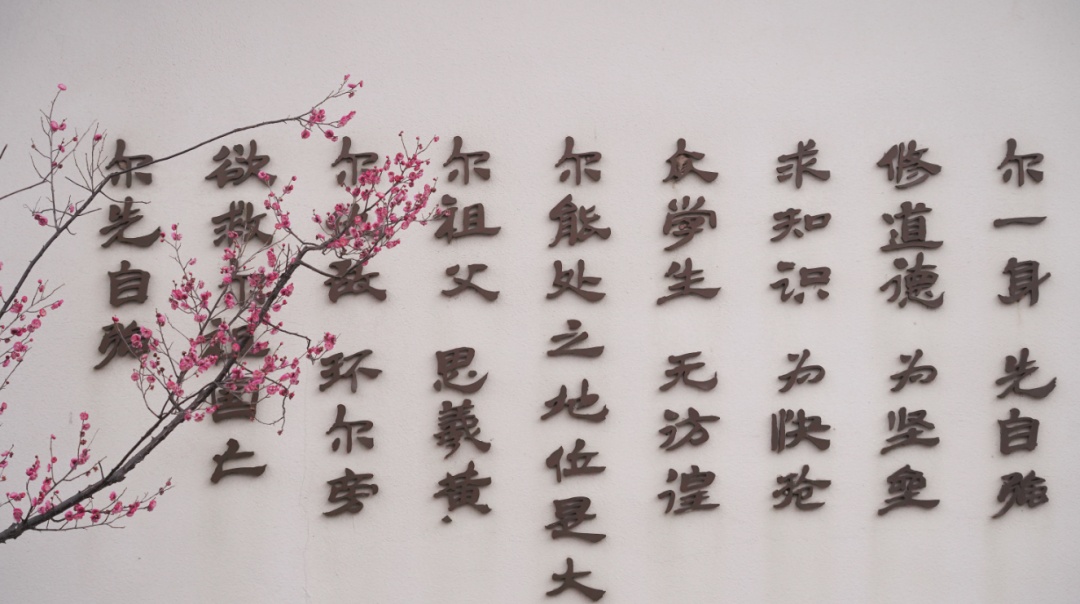 尔一身 先自强
修道德 为坚垒
求知识 为快枪
众学生 无彷徨
尔能处之地位是大
尔祖父 思羲黄
尔仇敌 环尔旁
欲救尔祖国亡
尔先自强